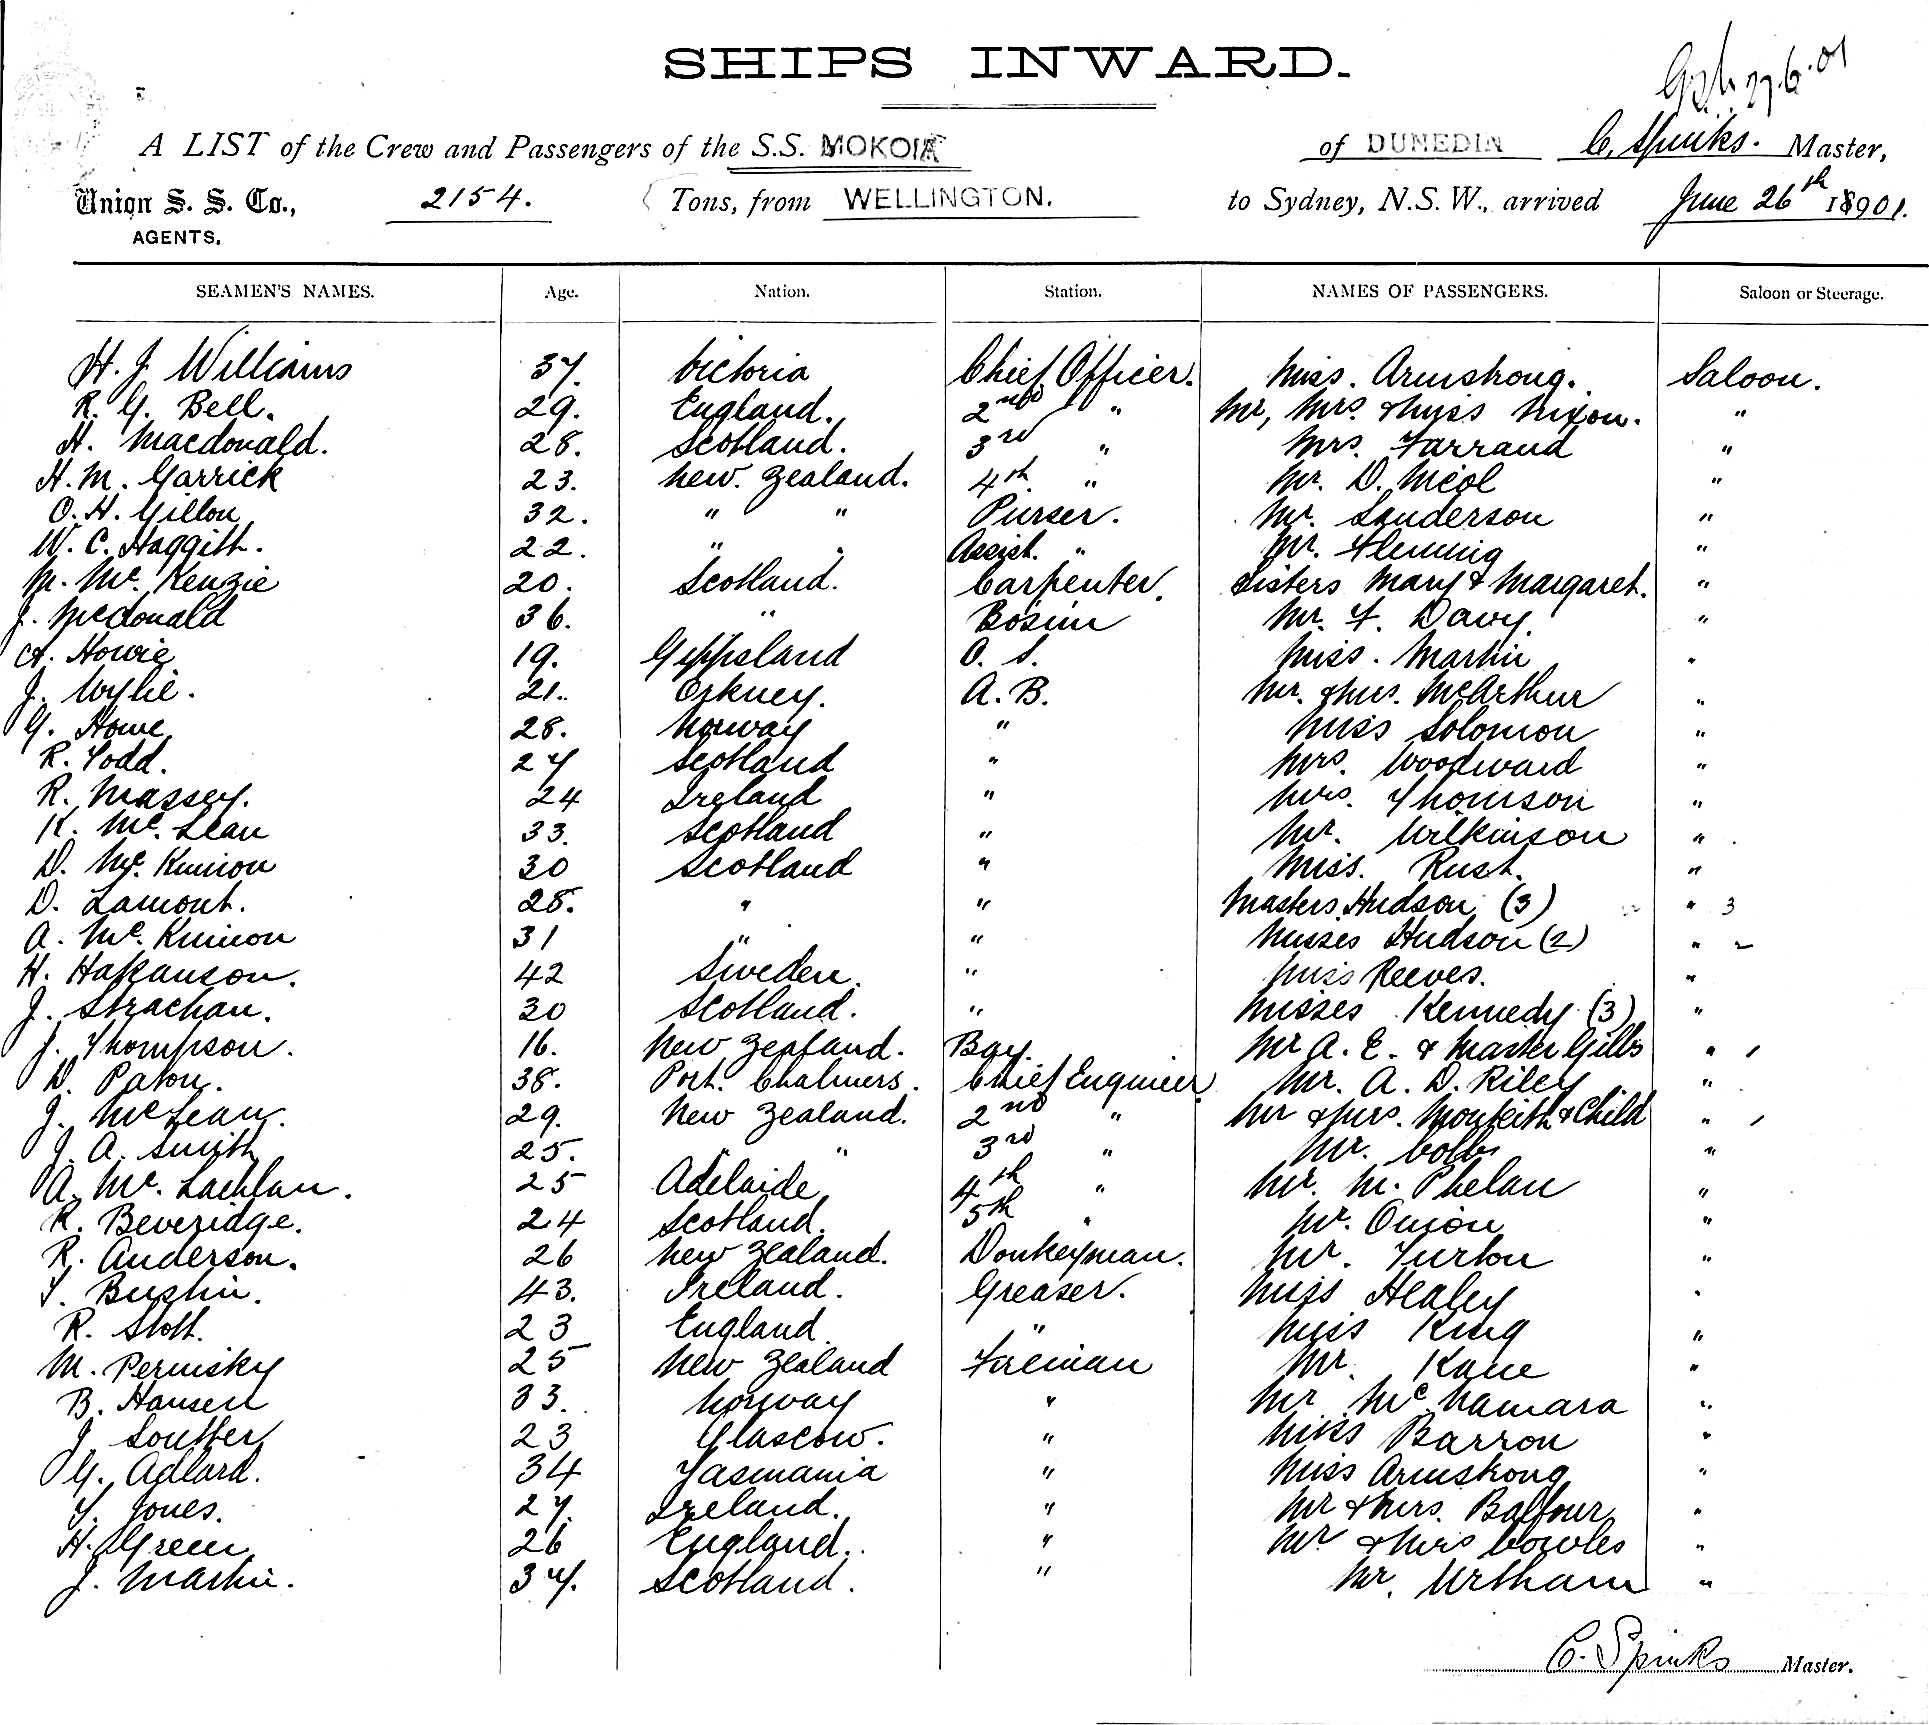 SHIPS INWARD.
27.6.01
A LIST of the Crew and Passengers of the S.S. MOKOIA of DUNEDIN C. Spinks. Master,
Union S. S. Co., 2154. Tons, from WELLINGTON. to Sydney, N.S.W., arrived June 26th 18901.
AGENTS.
SEAMEN'S NAMES. Age. Nation. Station. NAMES OF PASSENGERS. Saloon or Steerage.
H. J. Williams 37. Victoria Chief Officer. Miss. Armstrong. Saloon.
R. G. Bell. 29. England. 2nd " Mr, Mrs. & Miss Nixon. "
H. Macdonald. 28. Scotland. 3rd " Mrs. Farrand "
H. M. Garrick 23. New. Zealand. 4th. " Mr. D. Nicol "
O. H. Gillon 32. " " Purser. Mr. Sanderson "
W. C. Haggitt. 22. " " Assist. " Mr. Fleming "
M. Mc. Kenzie 20. Scotland. Carpenter. Sisters Mary & Margaret. "
J. McDonald 36. " Bosun Mr. F. Davy. "
A. Howie 19. Gippsland O. S. Miss. Martin "
J. Wylie. 21. Orkney. A. B. Mr. & Mrs. McArthur "
G. Howe 28. Norway " Miss Solomon "
R. Todd. 27 Scotland " Mrs. Woodward "
R. Massey. 24 Ireland " Mrs. Thomson "
K. Mc. Lean 33. Scotland " Mr. Wilkinson "
D. Mc. Kinnon 30 Scotland " Miss. Rush. "
D. Lamont. 28. " " Masters Hudson (3) " 3
A. Mc. Kinnon 31 " " Misses Hudson (2) " 2
H. Hakanson. 42 Sweden. " Miss Reeves. "
J. Strachan. 30 Scotland. " Misses Kennedy (3) "
J. Thompson. 16. New Zealand. Boy. Mr A. E. & Master Gibbs " /
D. Paton. 38. Port. Chalmers. Chief Engineer Mr. A. D. Riley "
J. McLean. 29. New Zealand. 2nd " Mr & Mrs. Monkeith & Child " /
J. A. Smith 25. " " 3rd " Mr. Cobb "
A. Mc. Lachlan. 25 Adelaide 4th " Mr. M. Phelan "
R. Beveridge. 24 Scotland. 5th " Mr. Onion "
R. Anderson. 26 New Zealand. Donkeyman. Mr. Turton "
T. Bushin. 43. Ireland. Greaser. Miss Healey "
R. Stott. 23 England. " Miss King "
M. Perinsky 25 New Zealand Fireman Mr. Kane "
B. Hansen 33. Norway " Mr Mc Namara "
J. Soutter 23 Glascow. " Miss Barron "
G. Adlard. 34 Tasmania " Miss Armstrong "
T. Jones. 27. Ireland. " Mr & Mrs. Balfour "
H. Green 26 England. " Mr & Mrs Cowles "
J. Martin. 37. Scotland. " Mr. Urtham "
C. Spinks Master.